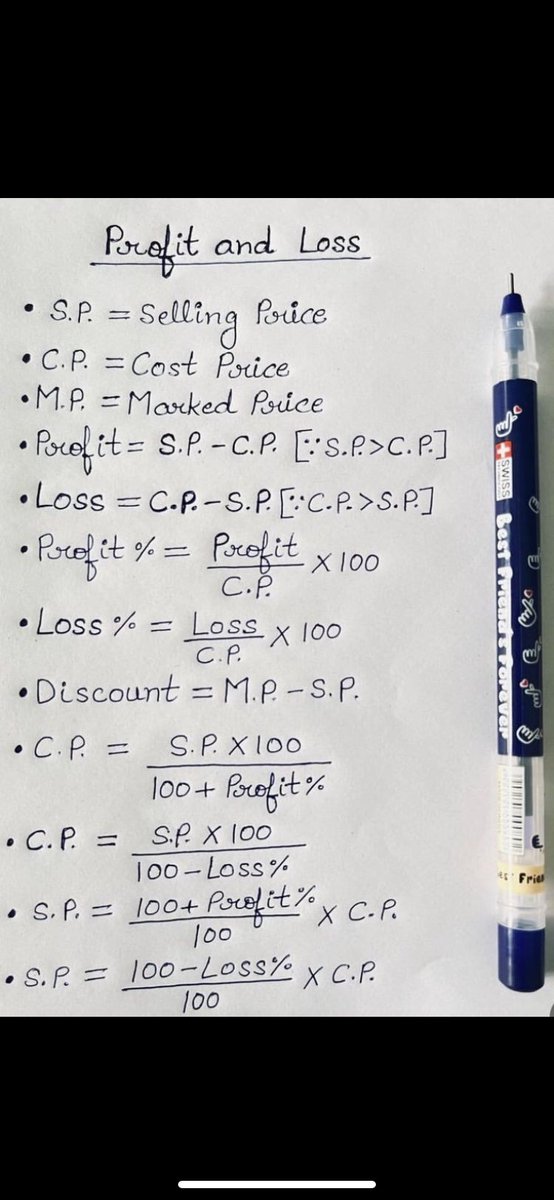 Profit and Loss
• S.P. = Selling Price
• C.P. = Cost Price
• M.P. = Marked Price
• Profit = S.P. - C.P. [∵ S.P. > C.P.]
• Loss = C.P. - S.P. [∵ C.P. > S.P.]
• Profit % = Profit / C.P. X 100
• Loss % = Loss / C.P. X 100
• Discount = M.P. - S.P.
• C.P. = S.P. X 100 / 100 + Profit %
• C.P. = S.P. X 100 / 100 - Loss %
• S.P. = 100 + Profit % / 100 X C.P.
• S.P. = 100 - Loss % / 100 X C.P.
SWISS
Best Friends Forever